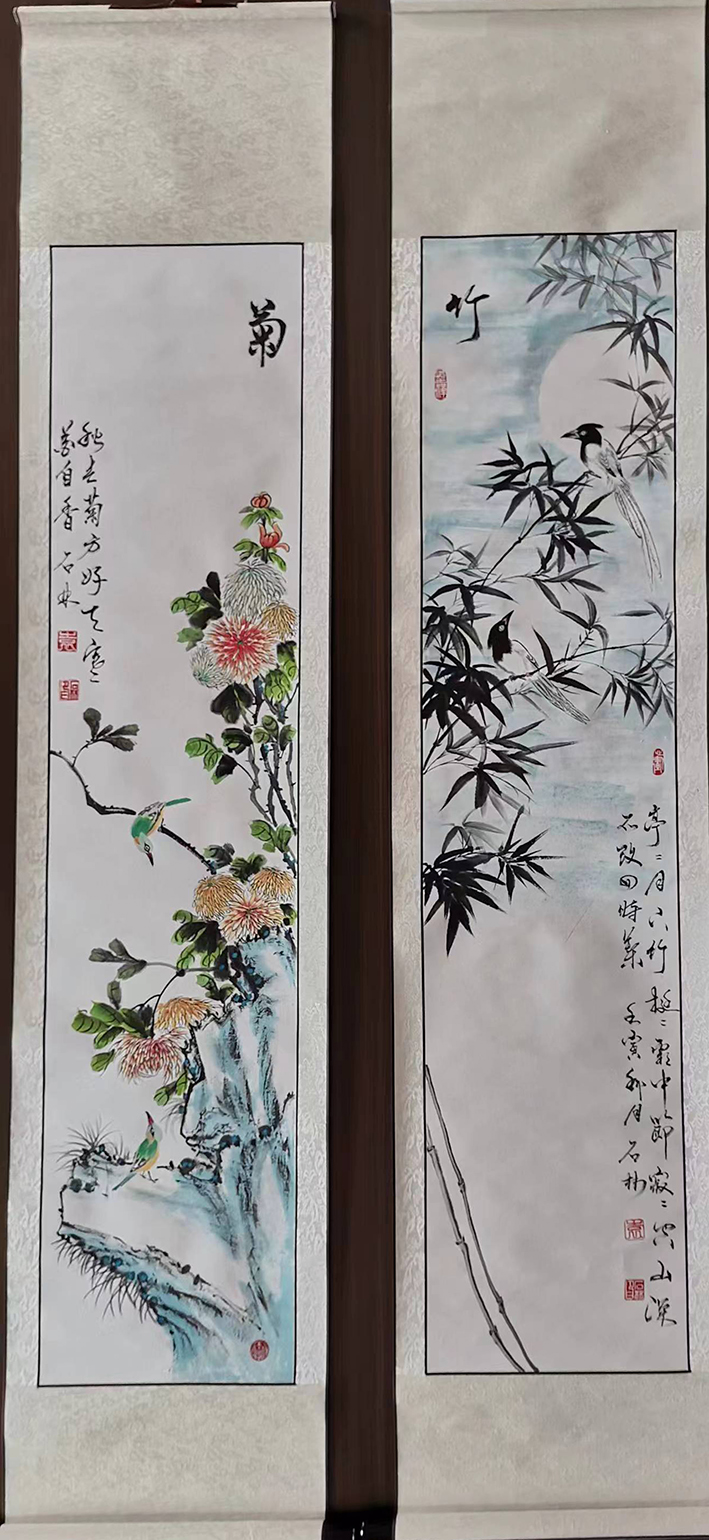 菊
秋去菊方好天寒
花自香 石林
竹
亭亭月下竹 挺挺霜中節 寂寂空山深
不改四時葉 壬寅秋月 石林